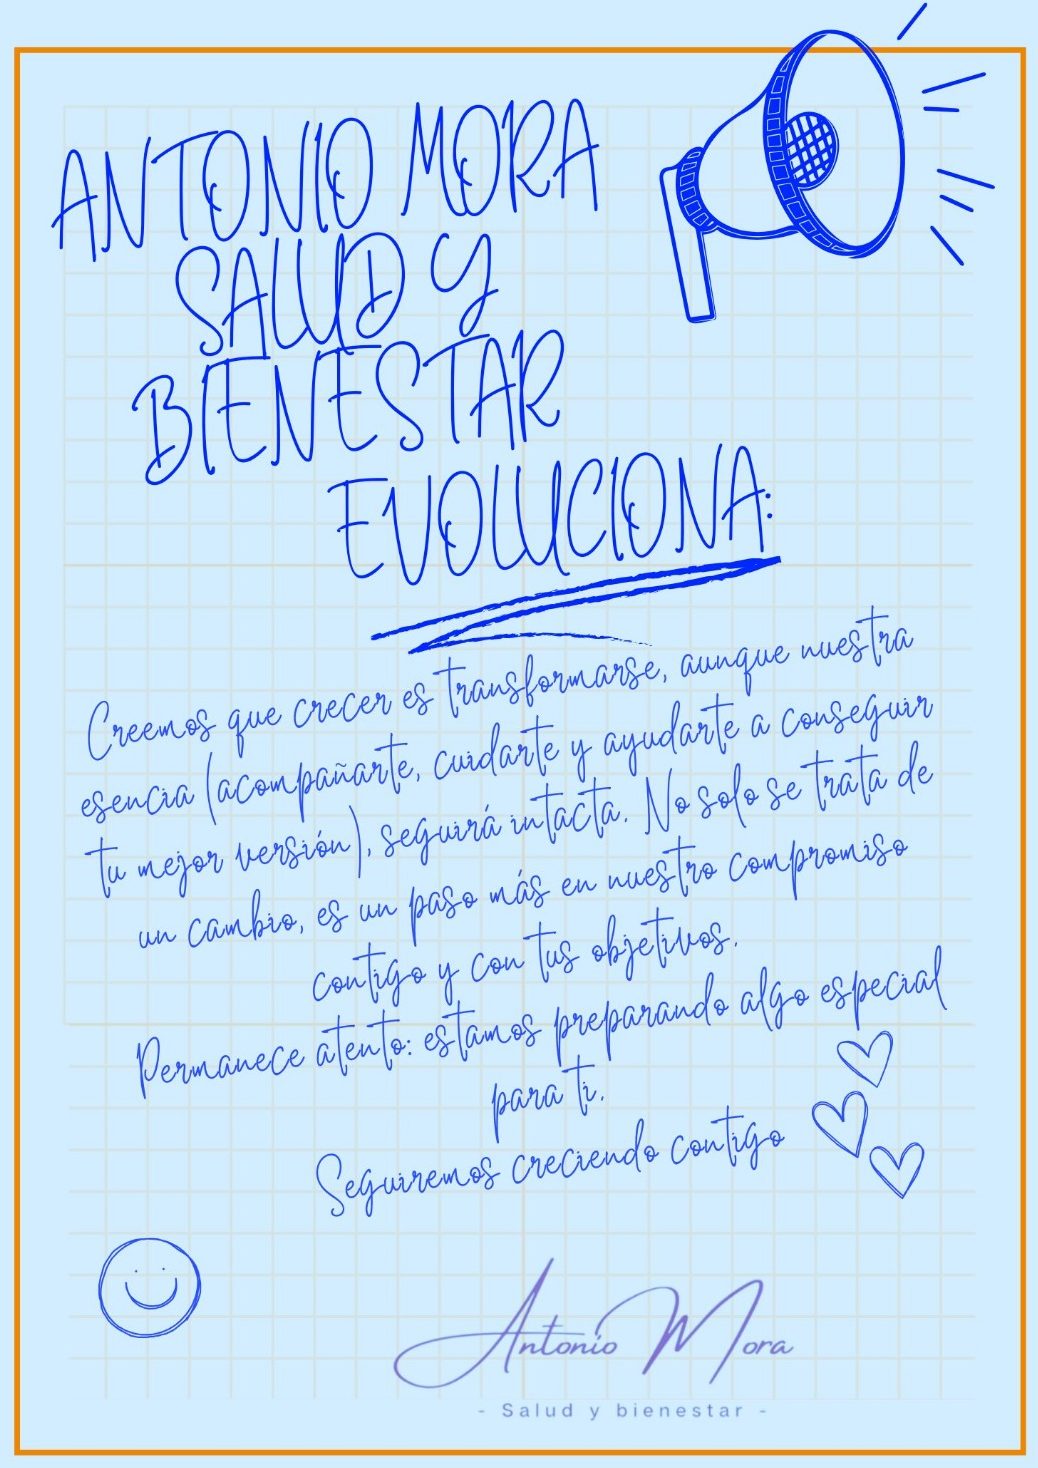 ANTONIO MORA
SALUD Y
BIENESTAR
EVOLUCIONA:
Creemos que crecer es transformarse, aunque nuestra
esencia (acompañarte, cuidarte y ayudarte a conseguir
tu mejor versión), seguirá intacta. No solo se trata de
un cambio, es un paso más en nuestro compromiso
contigo y con tus objetivos.
Permanece atento: estamos preparando algo especial
para ti.
Seguiremos creciendo contigo
Antonio Mora
- Salud y bienestar -